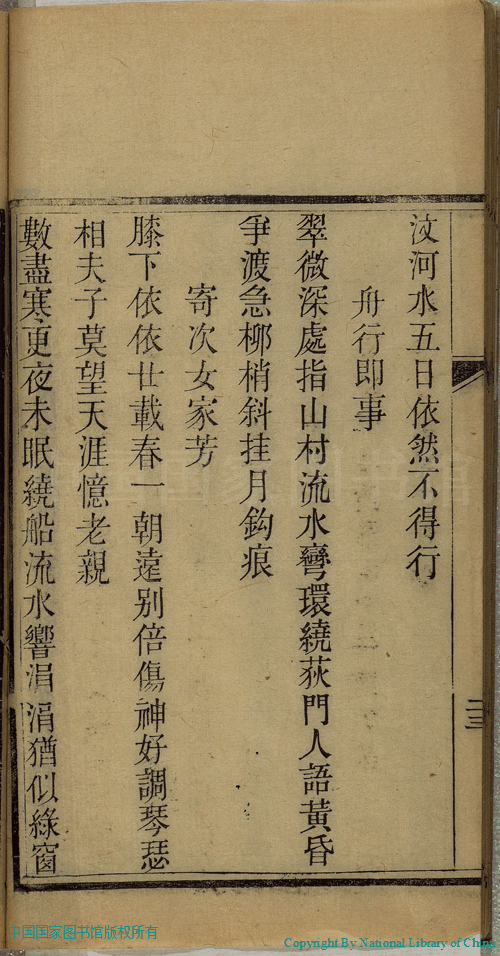 汶河水五日依然不得行
舟行即事
翠微深處指山村流水彎環繞荻門人語黃昏
爭渡急柳梢斜挂月鈎痕
寄次女家芳
膝下依依廿載春一朝遠别倍傷神好調琴瑟
相夫子莫望天涯憶老親
數盡寒更夜未眠繞船流水響涓涓猶似綠窗
二三
中国国家图书馆版权所有
Copyright By National Library of China